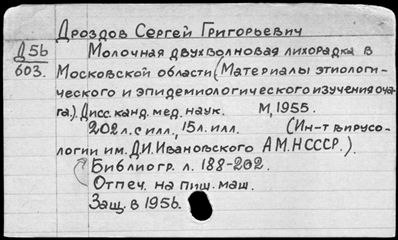 Дроздов Сергей Григорьевич
Д56
603.
Молочная двухволновая лихорадка в
Московской области (Материалы этиологи-
ческого и эпидемиологического изучения оча-
га.) Дисс. канд. мед. наук. М, 1955.
202 л. с илл., 15 л. илл. (Ин-т вирусо-
логии им. Д.И. Ивановского АМН СССР.).
Библиогр. л. 188-202.
Отпеч. на пиш. маш.
Защ. в 1956.